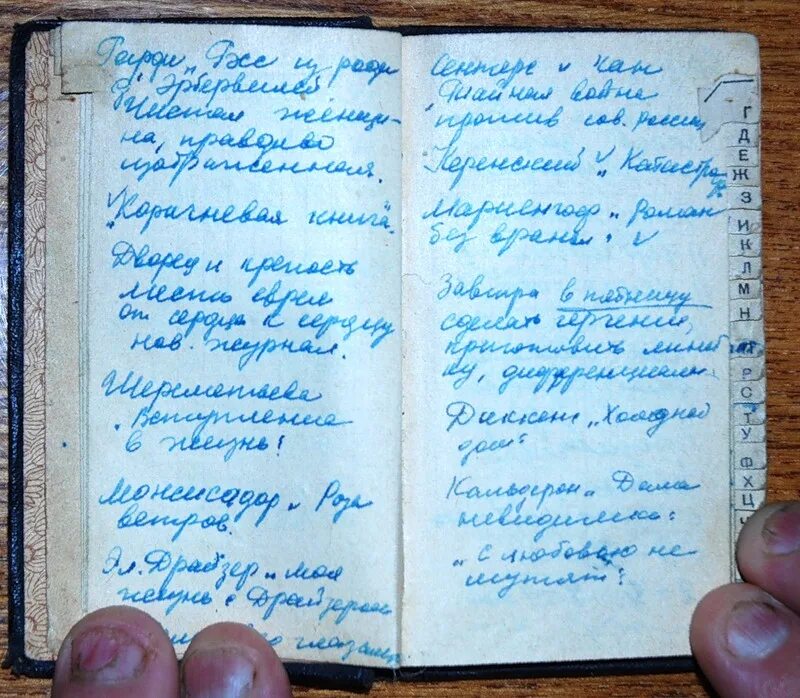 Гарди „Тэс из рода
д'Эрбервилей
Чистая женщи-
на, правдиво
изображенная.
„Коричневая книга"
Дворец и крепость
месть еврея
от сердца к сердцу
нов. журнал.
Шереметьева
„Вступление
в жизнь!
Монсисадор „Роза
ветров.
Эл. Драйзер „моя
жизнь с Драйзером
глазами
Сейерс и Кан
Тайная война
против сов. России
Керенский „Катастро
фа
Мариенгоф „Роман
без вранья"
Завтра в пятницу
сделать черчение,
приготовить
дифференциалы
Диккенс „Холодный
дом"
Кальдерон „Дама
невидимка"
„с любовью не
шутят"
Г
Д
Е
Ж
З
И
К
Л
М
Н
Р
С
Т
У
Ф
Х
Ц
Ч